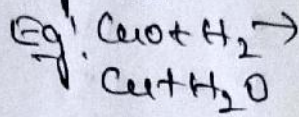 Eg! CuO + H₂ →
Cu + H₂O